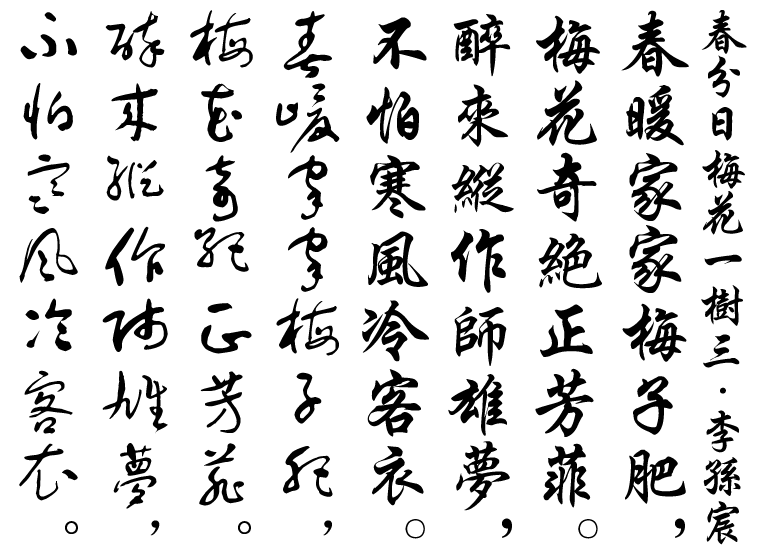 春分日梅花一樹三·李孫宸
春暖家家梅子肥，
梅花奇絕正芳菲。
醉來縱作師雄夢，
不怕寒風冷客衣。
春暖家家梅子肥，
梅花奇絕正芳菲。
醉來縱作師雄夢，
不怕寒風冷客衣。